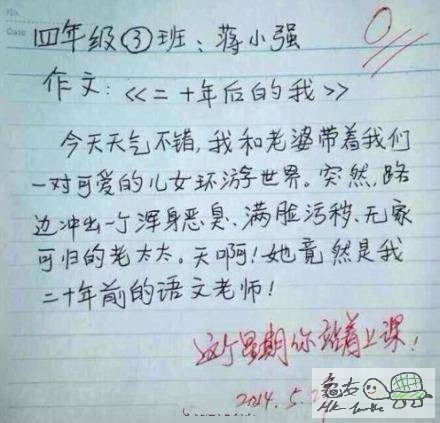 No.
Date
四年级③班：蒋小强
0
作文：<<二十年后的我>>
今天天气不错，我和老婆带着我们
一对可爱的儿女环游世界。突然，路
边冲出一个浑身恶臭、满脸污秽、无家
可归的老太太。天啊！她竟然是我
二十年前的语文老师！
这个星期你站着上课！
2014.5.2
龟友